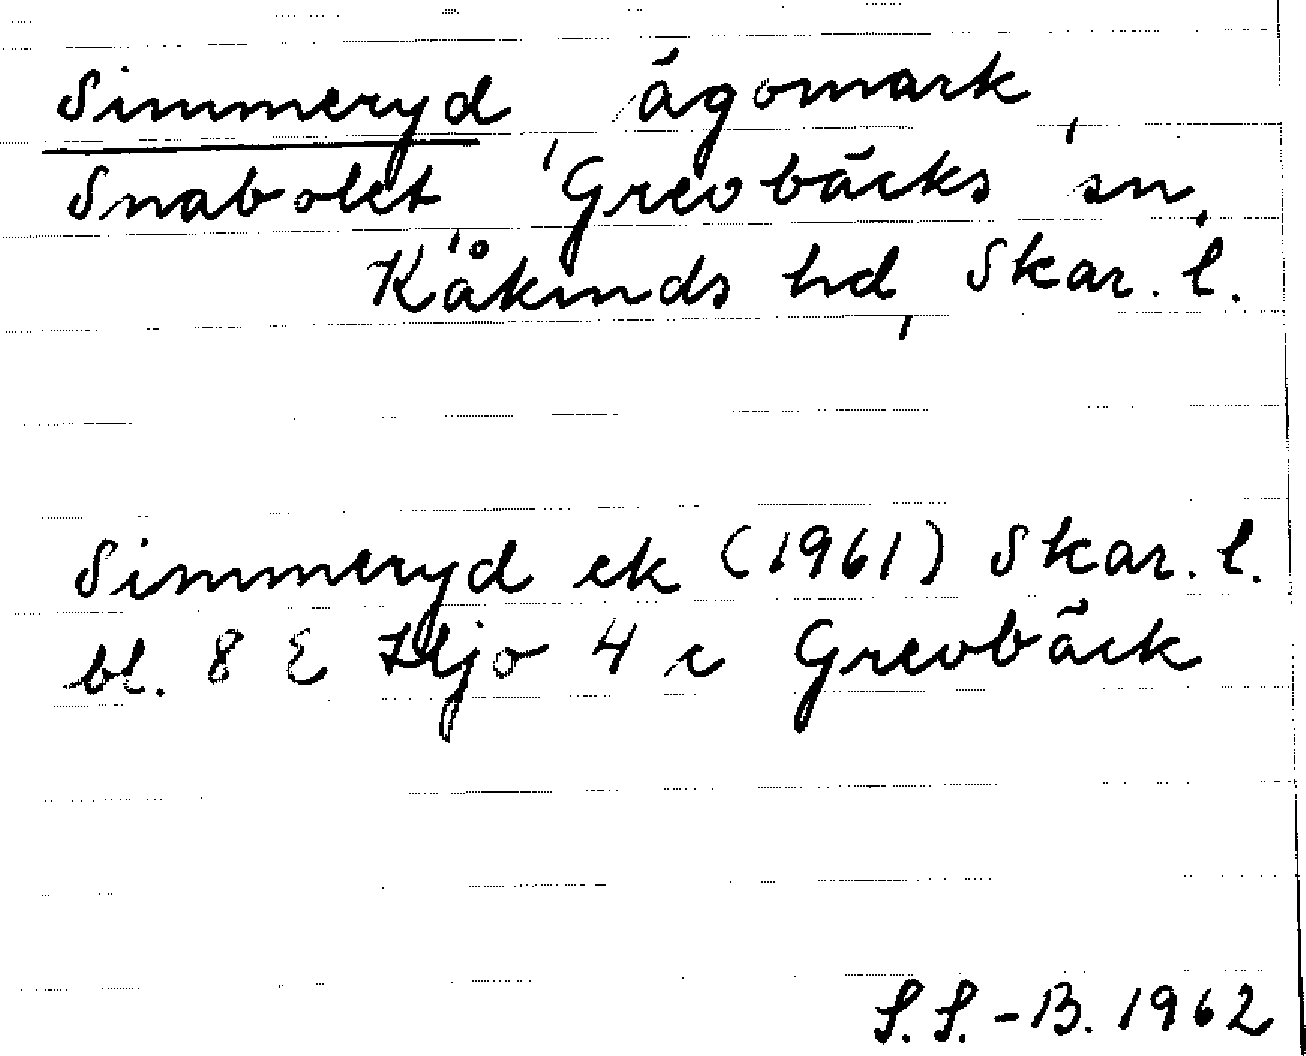 Simmeryd, ägomark,
Snabolet, Grevbäcks sn,
Kåkinds hd, Skar. l.
Simmeryd ek (1961) Skar. l.
bl. 8 E Hjo 4 c Grevbäck
S.S.-B. 1962